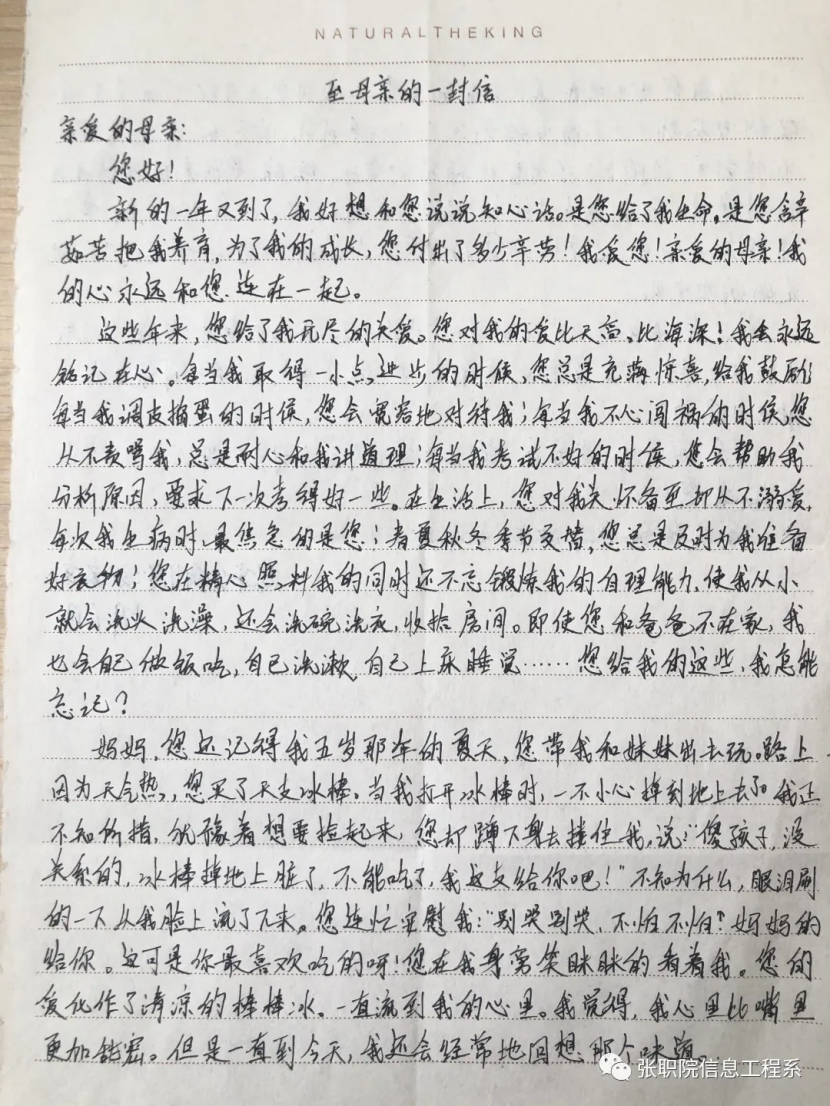 NATURALTHEKING
至母亲的一封信
亲爱的母亲:
您好!
新的一年又到了,我好想和您说说知心话。是您给了我生命。是您含辛
茹苦把我养育,为了我的成长,您付出了多少辛劳!我爱您!亲爱的母亲!我
的心永远和您连在一起。
这些年来,您给了我无尽的关爱。您对我的爱比天高、比海深!我会永远
铭记在心。每当我取得一小点进步的时候,您总是充满惊喜,给我鼓励;
每当我调皮捣蛋的时候,您会宽容地对待我;每当我不心闯祸的时候,您
从不责骂我,总是耐心和我讲道理;每当我考试不好的时候,您会帮助我
分析原因,要求下一次考得好一些。在生活上,您对我关怀备至却从不溺爱,
每次我生病时,最焦急的是您;春夏秋冬季节交替,您总是及时为我准备
好衣物;您在精心照料我的同时还不忘锻炼我的自理能力,使我从小
就会洗头洗澡,还会洗碗洗衣,收拾房间。即使您和爸爸不在家,我
也会自己做饭吃,自己洗漱,自己上床睡觉……您给我的这些,我怎能
忘记?
妈妈,您还记得我五岁那年的夏天,您带我和妹妹出去玩。路上
因为天气热,您买了支冰棒。当我打开冰棒时,一不小心掉到地上去了。我正
不知所措,犹豫着想要捡起来,您却蹲下身去接住我,说:“傻孩子,没
关系的,冰棒掉地上脏了,不能吃了,我这支给你吧!”不知为什么,眼泪刷
的一下从我脸上流了下来。您连忙安慰我:“别哭别哭,不怕不怕?妈妈的
给你。这可是你最喜欢吃的呀!您在我身旁笑眯眯的看着我。您的
爱化作了清凉的棒棒冰。一直流到我的心里。我觉得,我心里比嘴里
更加甜蜜。但是一直到今天,我还会经常地回想那个味道。
张职院信息工程系